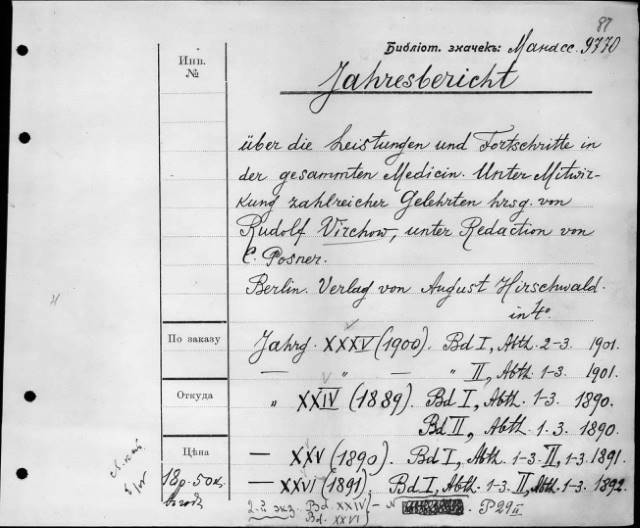 87
Библіот. значекъ: Манасс. 9770
Инв.
№
Jahresbericht
über die Leistungen und Fortschritte in
der gesammten Medicin. Unter Mitwir-
kung zahlreicher Gelehrten hrsg. von
Rudolf Virchow, unter Redaction von
C. Posner.
Berlin. Verlag von August Hirschwald.
in 4°.
По заказу
Jahrg. XXXV (1900). Bd I, Abth. 2-3. 1901.
— " — " II, Abth. 1-3. 1901.
Откуда
" XXIV (1889). Bd I, Abth. 1-3. 1890.
Bd II, Abth. 1-3. 1890.
Цѣна
— XXV (1890). Bd I, Abth. 1-3. II, 1-3. 1891.
18р. 50к.
— XXVI (1891). Bd I, Abth. 1-3. II, Abth. 1-3. 1892.
2-й экз. Bd. XXIV
Bd. XXVI